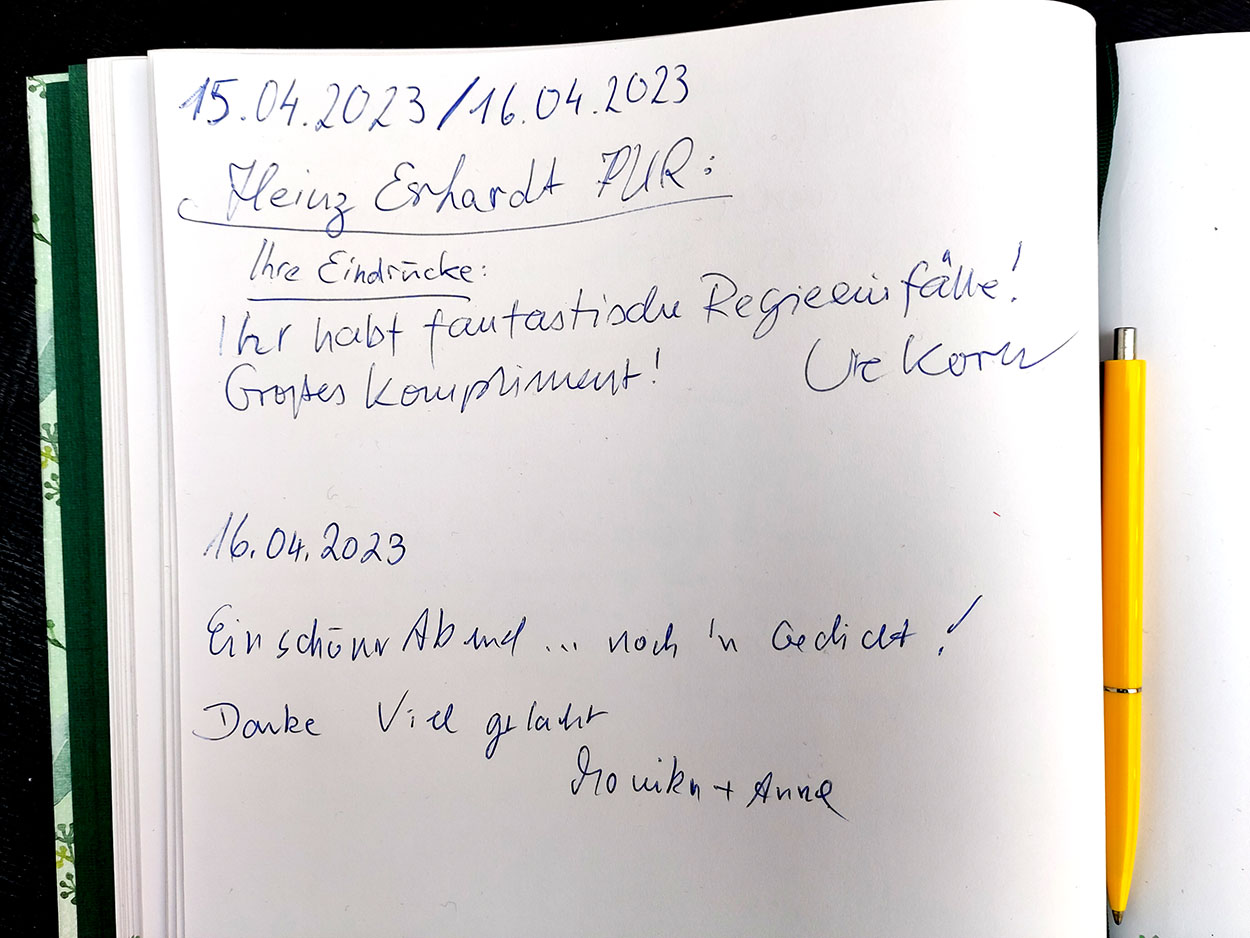 15.04.2023/16.04.2023
Heinz Erhardt PUR:
Ihre Eindrücke:
Ihr habt fantastische Regieeinfälle!
Großes Kompliment! Ute Korn
16.04.2023
Ein schöner Abend ... noch 'n Gedicht!
Danke Viel gelacht
Monika + Anne